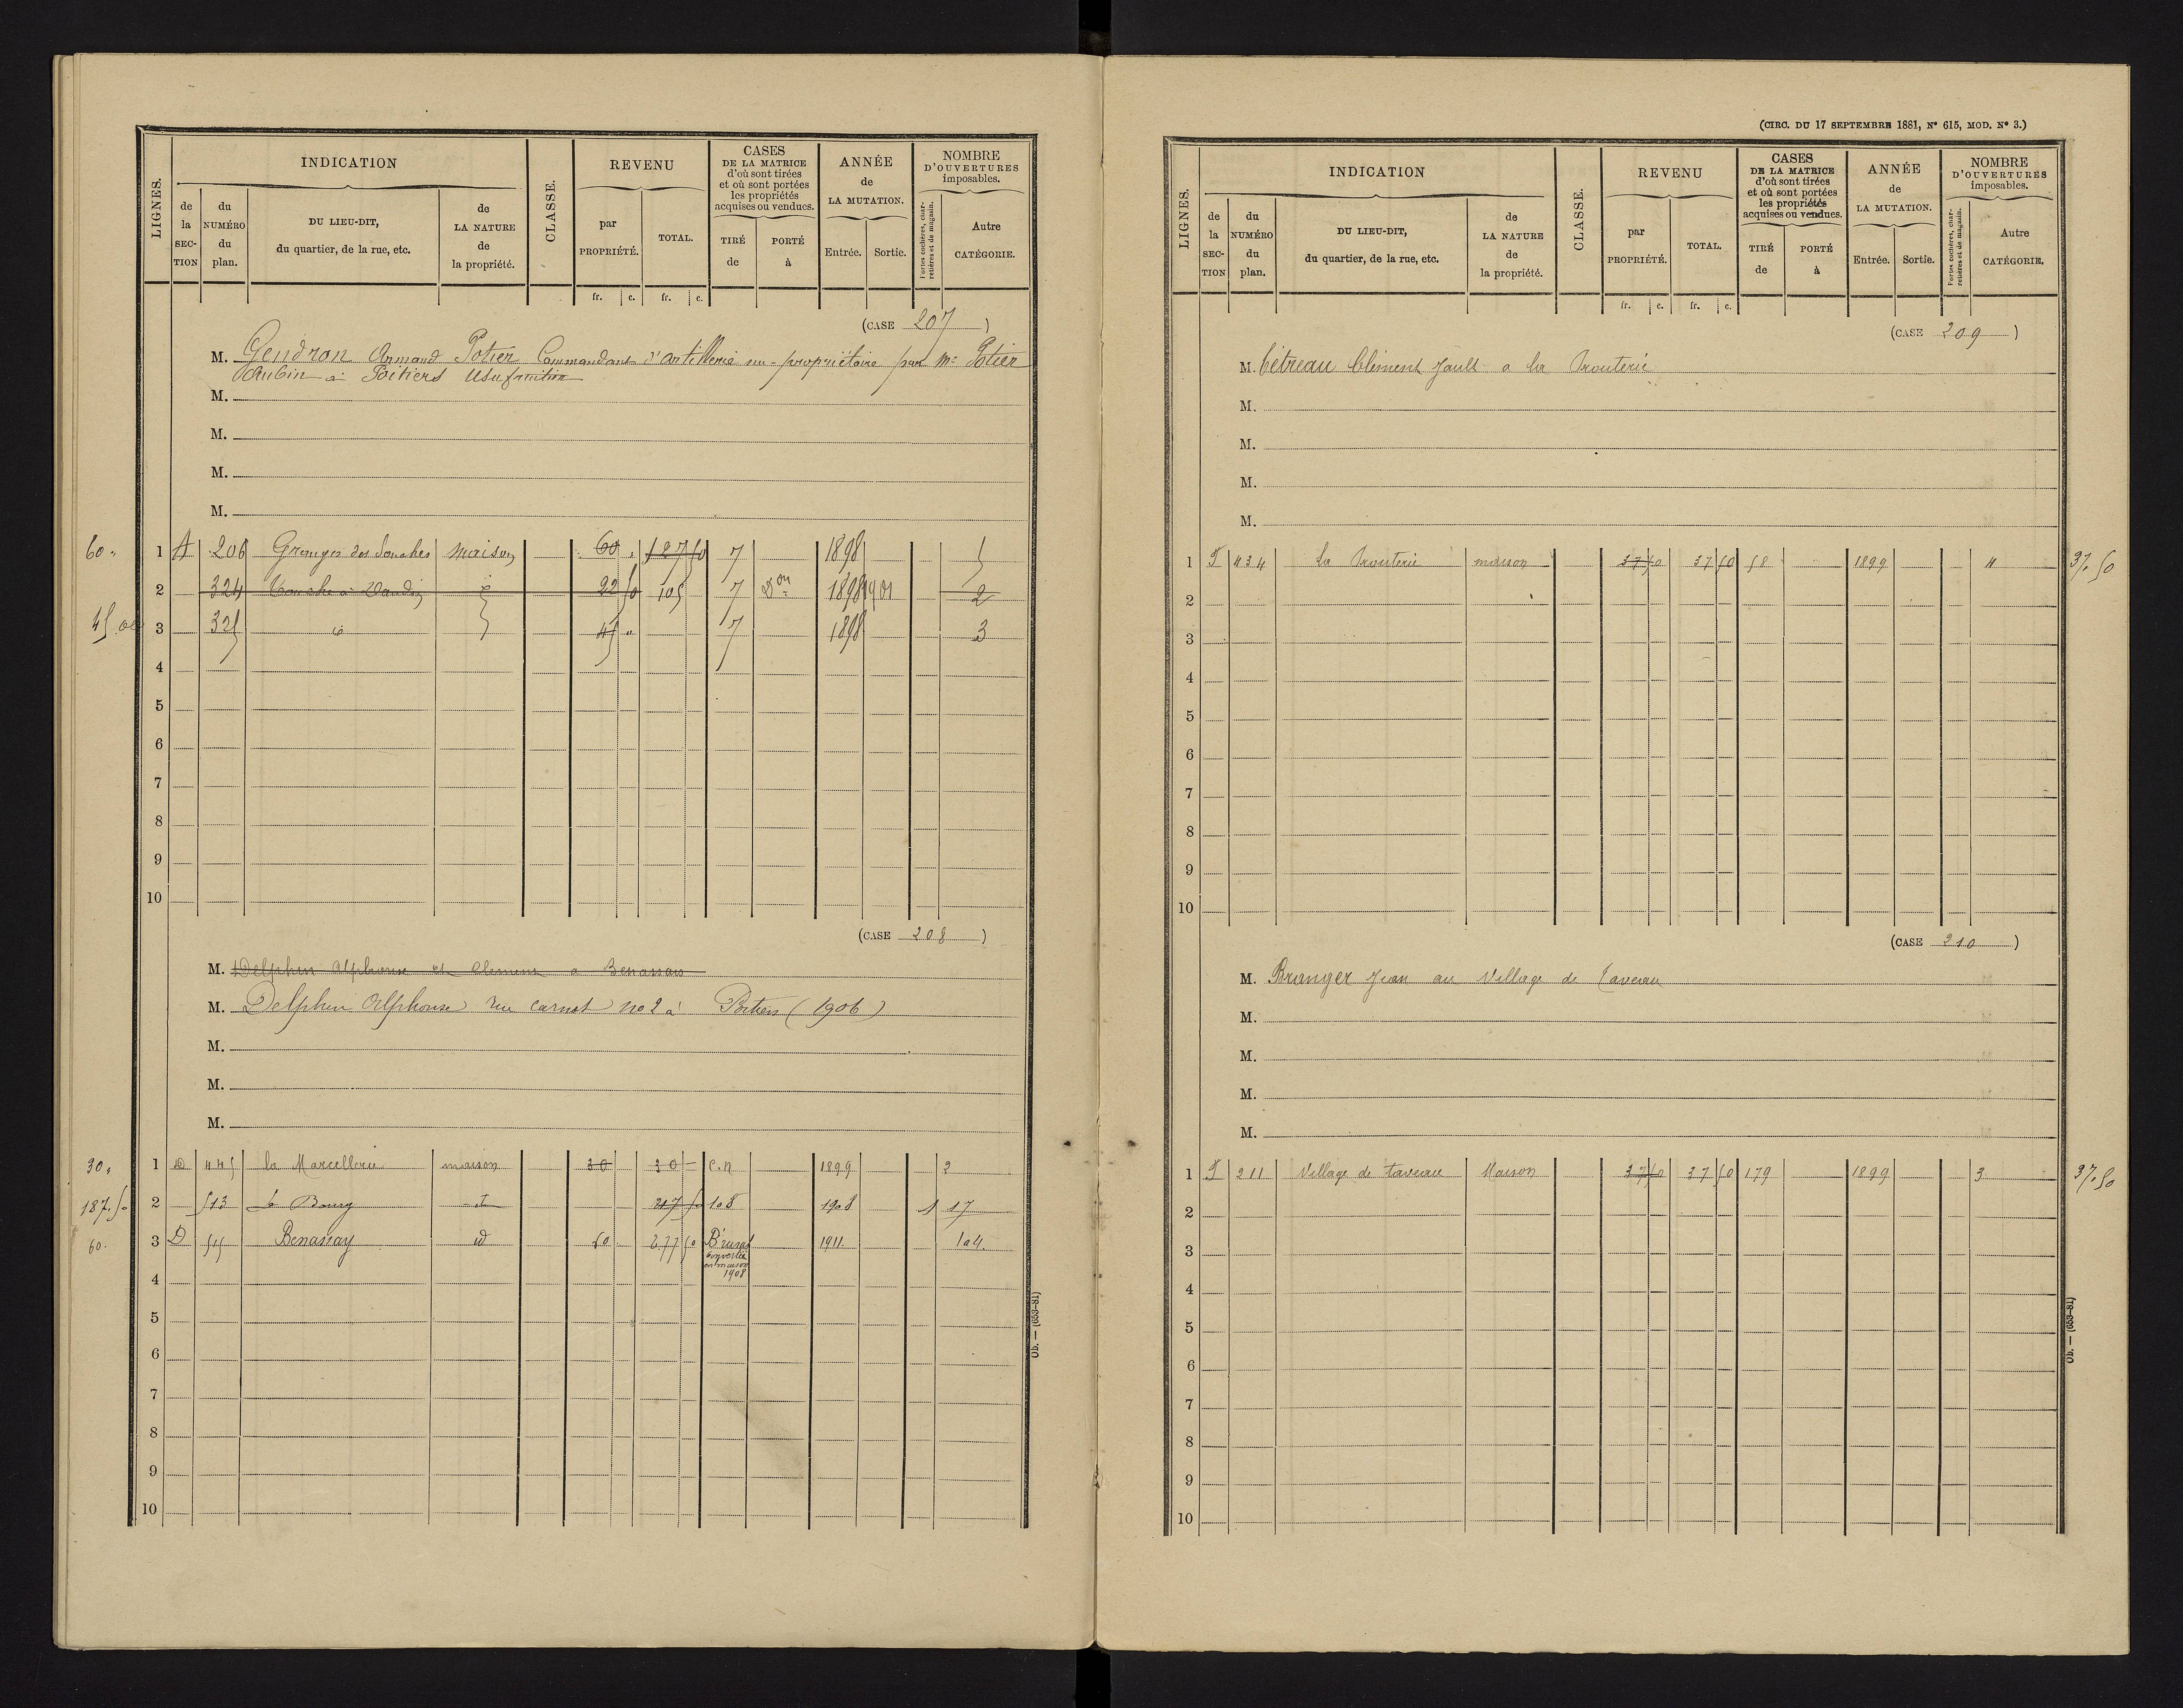 INDICATION
CLASSE.
REVENU
CASES
DE LA MATRICE
d'où sont tirées
et où sont portées
les propriétés
acquises ou vendues.
ANNÉE
de
LA MUTATION.
NOMBRE
D'OUVERTURES
imposables.
LIGNES.
de la SECTION
du NUMÉRO du plan.
DU LIEU-DIT,
du quartier, de la rue, etc.
de LA NATURE de la propriété.
par PROPRIÉTÉ.
TOTAL.
TIRÉ de
PORTÉ à
Entrée.
Sortie.
Portes cochères, charretières et de magasin.
Autre CATÉGORIE.
fr. c. fr. c.
(CASE 207)
M. Gendron Armand Potier Commandant d'artillerie nu-propriétaire par Me Potier
Aubin à Poitiers Usufruitier
M.
M.
M.
M.
60 " 1 A 206 Granges des Souches maison 60 " 127 50 7 1898 1
2 324 22 50 105 7 Don 1898 1901 2
45.00 3 325 id 45 " 7 1898 3
4
5
6
7
8
9
10
(CASE 208)
M. Delphin Alphonse et Clemence a Benassais
M. Delphin Alphonse rue carnot no 2 à Poitiers (1906)
M.
M.
M.
30 " 1 D 445 la Marcellerie maison 30 30 - C.n 1899 2
187.50 2 513 le Bourg id 217 50 108 1908 1 17
60. 3 D 515 Benassay id 60 277 50 B. rural 1911. 1a4.
convertie
en maison
1908
4
5
6
7
8
9
10
Ob. — (653-81)
(CIRC. DU 17 SEPTEMBRE 1881, N° 615, MOD. N° 3.)
INDICATION
CLASSE.
REVENU
CASES
DE LA MATRICE
d'où sont tirées
et où sont portées
les propriétés
acquises ou vendues.
ANNÉE
de
LA MUTATION.
NOMBRE
D'OUVERTURES
imposables.
LIGNES.
de la SECTION
du NUMÉRO du plan.
DU LIEU-DIT,
du quartier, de la rue, etc.
de LA NATURE de la propriété.
par PROPRIÉTÉ.
TOTAL.
TIRÉ de
PORTÉ à
Entrée.
Sortie.
Portes cochères, charretières et de magasin.
Autre CATÉGORIE.
fr. c. fr. c.
(CASE 209)
M. Clément Jault a la Prouterie
M.
M.
M.
M.
1 434 la Prouterie maison 37 50 37 50 58 1899 4 37.50
2
3
4
5
6
7
8
9
10
(CASE 210)
M. Branger Jean au Village de Taveau
M.
M.
M.
M.
1 211 Village de taveau Maison 37 50 37 50 179 1899 3 37.50
2
3
4
5
6
7
8
9
10
Ob. — (653-81)